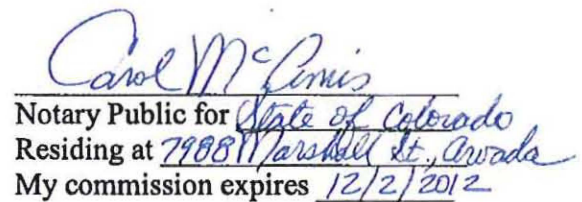 Carol McGinnis
Notary Public for State of Colorado
Residing at 7988 Marshall St., Arvada
My commission expires 12/2/2012